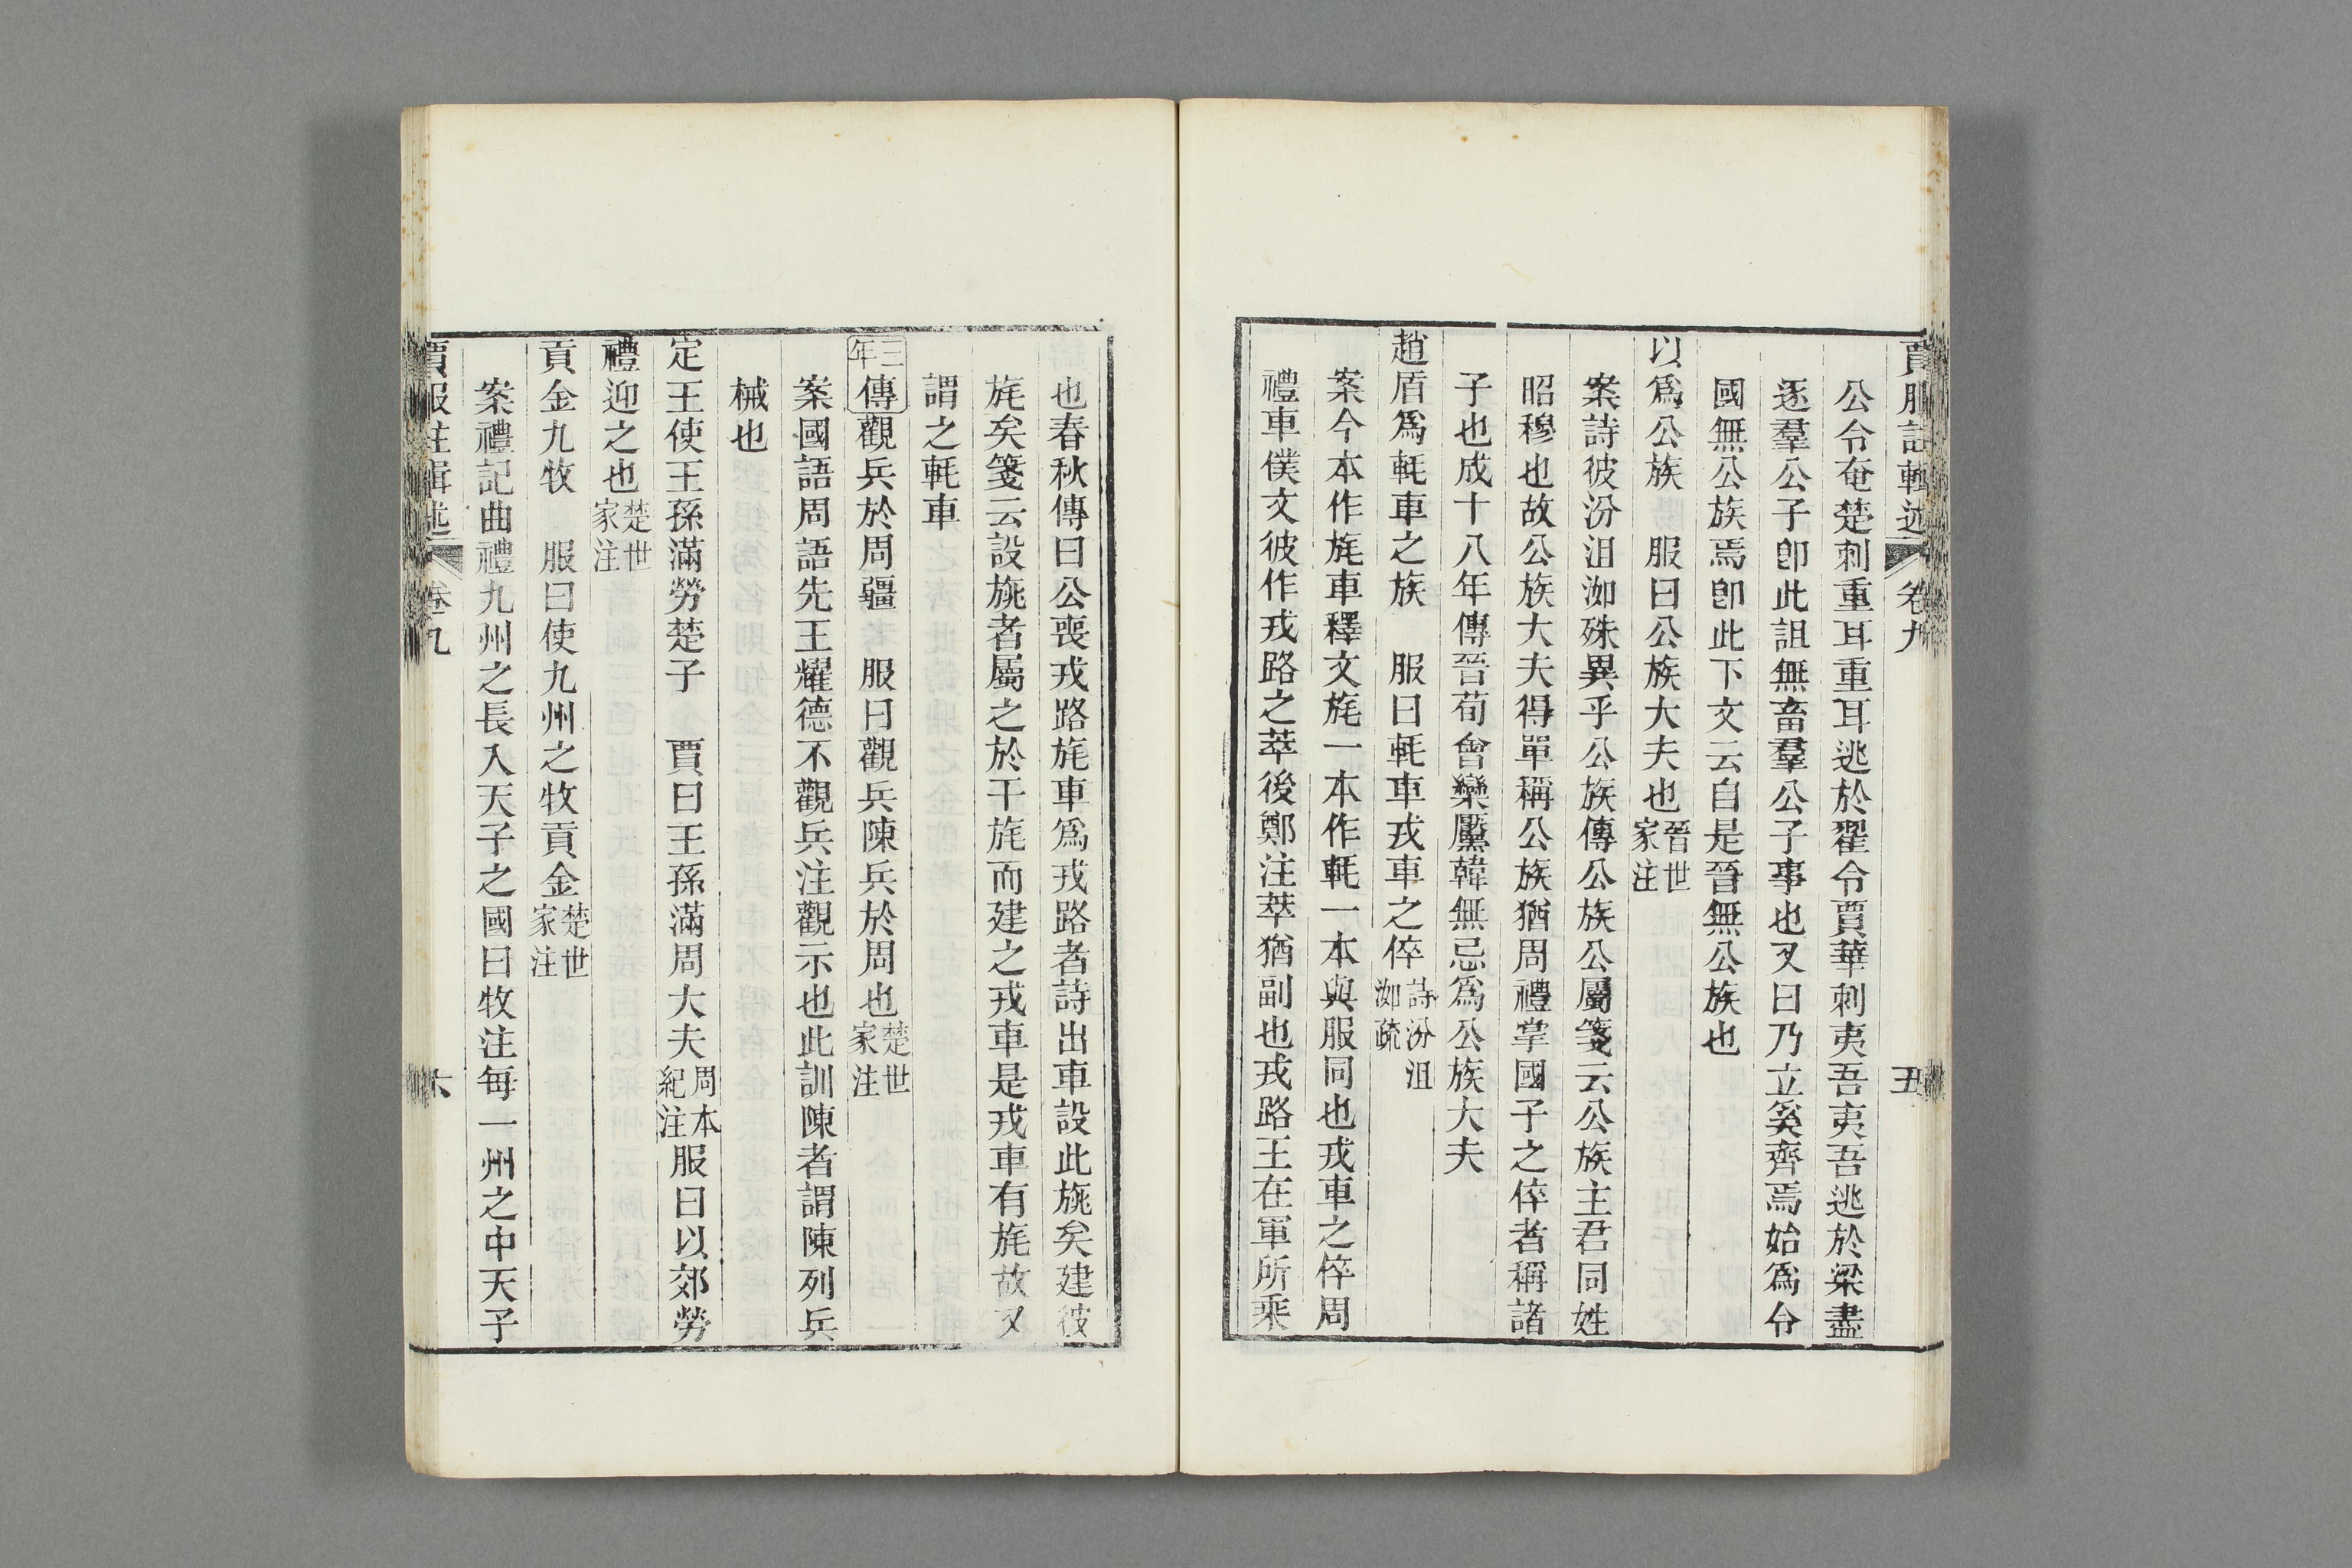 賈服註輯述 卷九 五
公令奄楚刺重耳重耳逃於翟令賈華刺夷吾夷吾逃於梁盡
逐羣公子卽此詛無畜羣公子事也又曰乃立奚齊焉始爲令
國無公族焉卽此下文云自是晉無公族也
以爲公族 服曰公族大夫也晉世家注
案詩彼汾沮洳殊異乎公族傳公族公屬箋云公族主君同姓
昭穆也故公族大夫得單稱公族猶周禮掌國子之倅者稱諸
子也成十八年傳晉荀會欒黶韓無忌爲公族大夫
趙盾爲軞車之族 服曰軞車戎車之倅詩汾沮洳疏
案今本作旄車釋文旄一本作軞一本與服同也戎車之倅周
禮車僕文彼作戎路之萃後鄭注萃猶副也戎路王在軍所乘
也春秋傳曰公喪戎路旄車爲戎路者詩出車設此旐矣建彼
旄矣箋云設旐者屬之於干旄而建之戎車是戎車有旄故又
謂之軞車
三年傳觀兵於周疆 服曰觀兵陳兵於周也楚世家注
案國語周語先王耀德不觀兵注觀示也此訓陳者謂陳列兵
械也
定王使王孫滿勞楚子 賈曰王孫滿周大夫周本紀注服曰以郊勞
禮迎之也楚世家注
貢金九牧 服曰使九州之牧貢金楚世家注
案禮記曲禮九州之長入天子之國曰牧注每一州之中天子
賈服注輯述 卷九 六